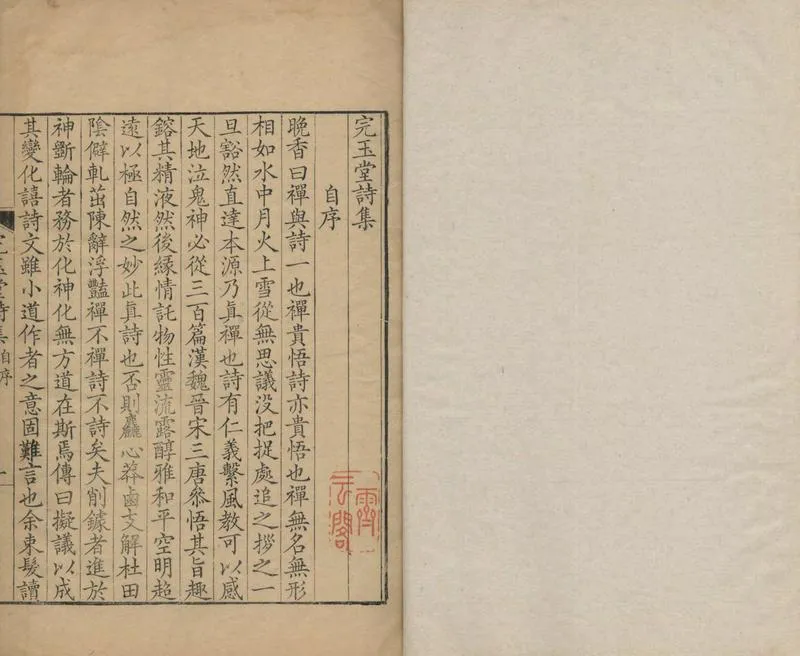 完玉堂詩集
自序
晚香曰禪與詩一也禪貴悟詩亦貴悟也禪無名無形
相如水中月火上雪從無思議没把捉處追之拶之一
旦豁然直達本源乃眞禪也詩有仁義繫風教可以感
天地泣鬼神必從三百篇漢魏晉宋三唐叅悟其旨趣
鎔其精液然後緣情託物性靈流露醇雅和平空明超
遠以極自然之妙此眞詩也否則麤心莽鹵支解杜田
陰僻軋茁陳辭浮豔禪不禪詩不詩矣夫削鐻者進於
神斲輪者務於化神化無方道在斯焉傳曰擬議以成
其變化譆詩文雖小道作者之意固難言也余束髮讀
完玉堂詩集
自序
一